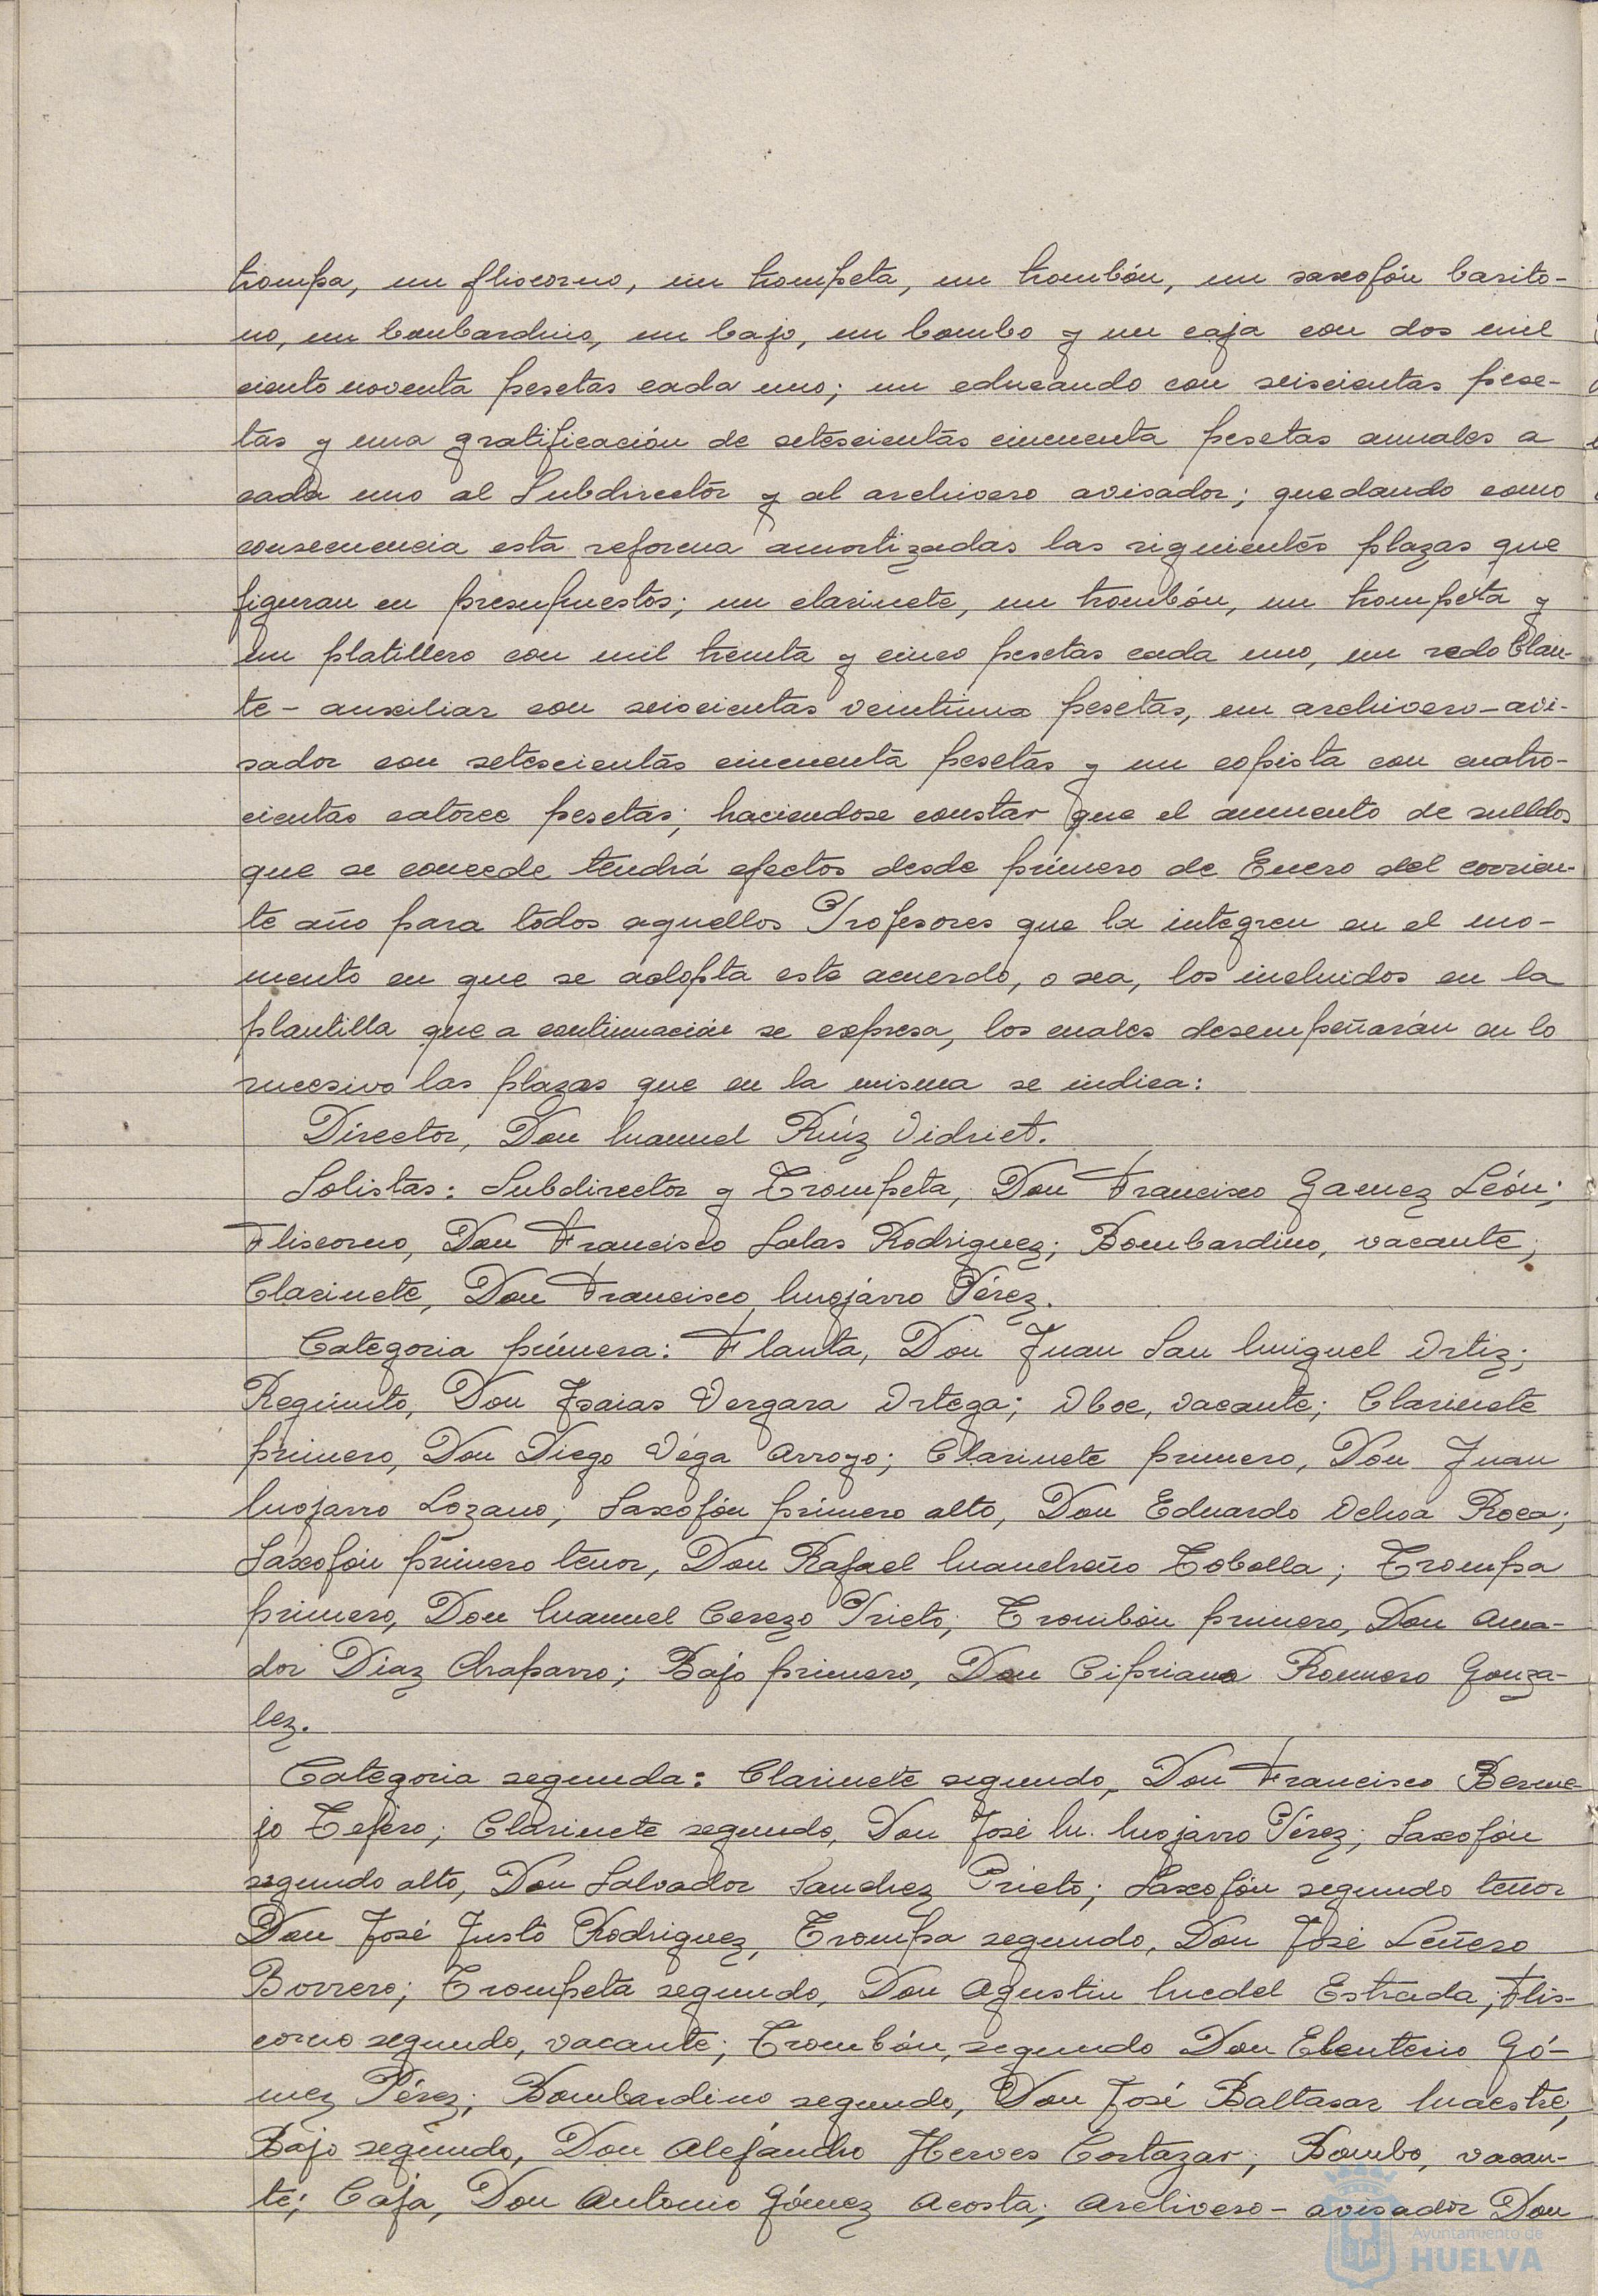 trompa, un fliscorno, un trompeta, un trombón, un saxofón baríto-
no, un bombardino, un bajo, un bombo y un caja con dos mil
ciento noventa pesetas cada uno; un educando con seiscientas pese-
tas y una gratificación de setescientas cincuenta pesetas anuales a
cada uno al Subdirector y al archivero avisador; quedando como
consecuencia esta reforma amortizadas las siguientes plazas que
figuran en presupuestos; un clarinete, un trombón, un trompeta y
un platillero con mil treinta y cinco pesetas cada uno, un redoblan-
te - auxiliar con seiscientas veintiuna pesetas, un archivero-avi-
sador con setescientas cincuenta pesetas y un copista con cuatro-
cientas catorce pesetas; haciendose constar que el aumento de sueldos
que se concede tendrá efectos desde primero de Enero del corrien-
te año para todos aquellos Profesores que la integren en el mo-
mento en que se adopta este acuerdo, o sea, los incluidos en la
plantilla que a continuación se expresa, los cuales desempeñarán en lo
sucesivo las plazas que en la misma se indica:
Director, Don Manuel Ruíz Vidriet.
Solistas: Subdirector y Trompeta, Don Francisco Gamez León;
Fliscorno, Don Francisco Salas Rodriguez; Bombardino, vacante;
Clarinete, Don Francisco Mojárro Pérez.
Categoria primera: Flauta, Don Juan San Miguel Ortiz;
Requinto, Don Isaias Vergara Ortega; Oboe, vacante; Clarinete
primero, Don Diego Véga Arroyo; Clarinete primero, Don Juan
Mojarro Lozano; Saxofón primero alto, Don Eduardo Ochoa Roca;
Saxofón primero tenor, Don Rafael Mancheño Tobolla; Trompa
primero, Don Manuel Cerezo Prieto; Trombón primero, Don Ama-
dor Diaz Chaparro; Bajo primero, Don Cipriano Romero Gonza-
lez.
Categoria segunda: Clarinete segundo, Don Francisco Berme-
jo Tejero; Clarinete segundo, Don José M. Mojarro Pérez; Saxofón
segundo alto, Don Salvador Sanchez Prieto; Saxofón segundo tenor
Don José Justo Rodriguez, Trompa segundo, Don José Leñero
Borrero; Trompeta segundo, Don Agustin Medel Estrada; Flis-
corno segundo, vacante; Trombón, segundo Don Eleuterio Gó-
mez Pérez; Bombardino segundo, Don José Baltasar Maestre;
Bajo segundo, Don Alejandro Herves Cortazar; Bombo, vacan-
te; Caja, Don Antonio Gómez Acosta; Archivero-avisador Don
Ayuntamiento de
HUELVA